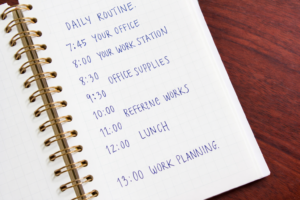 DAILY ROUTINE.
7:45 YOUR OFFICE
8:00 YOUR WORK STATION
8:30 OFFICE SUPPLIES
9:30
10:00 REFERING WORKS
11:00 LUNCH
12:00
13:00 WORK PLANNING.